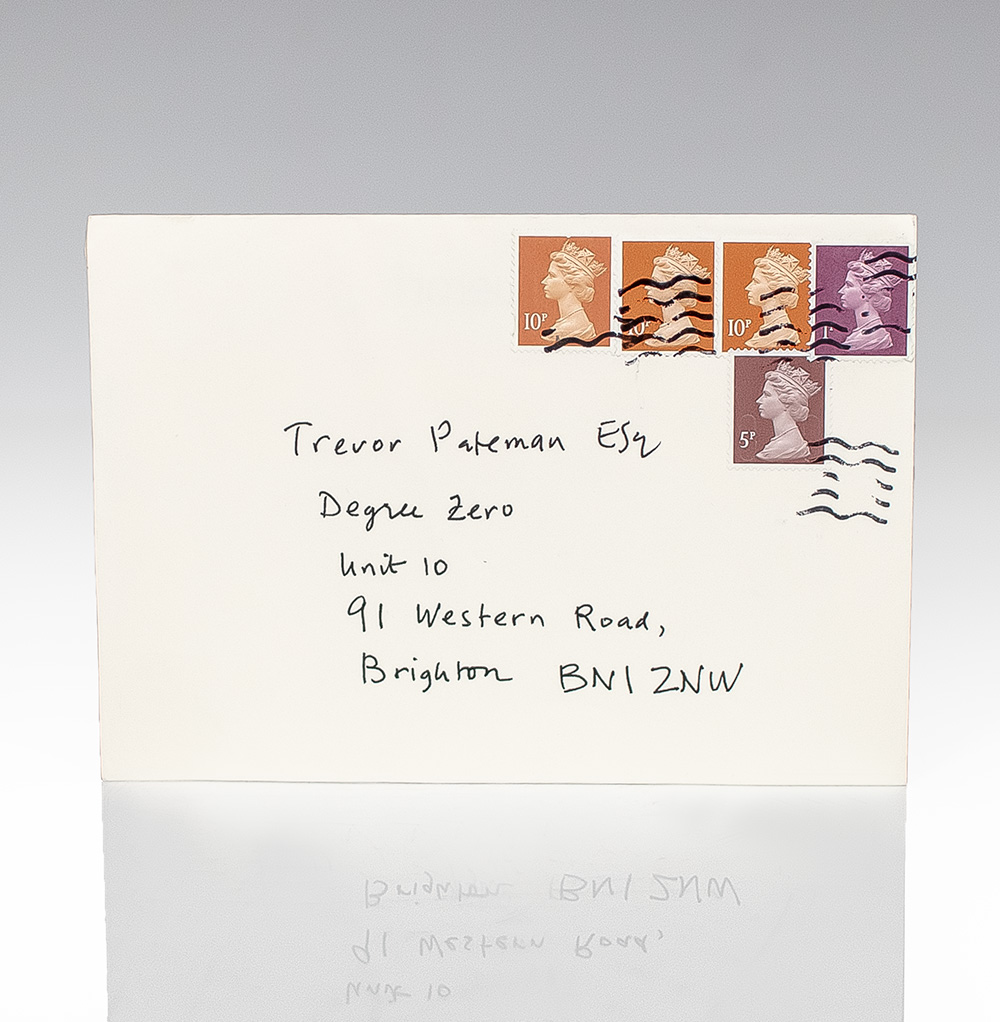 10P
10P
10P
5P
Trevor Pateman Esq
Degree Zero
Unit 10
91 Western Road,
Brighton BN1 2NW